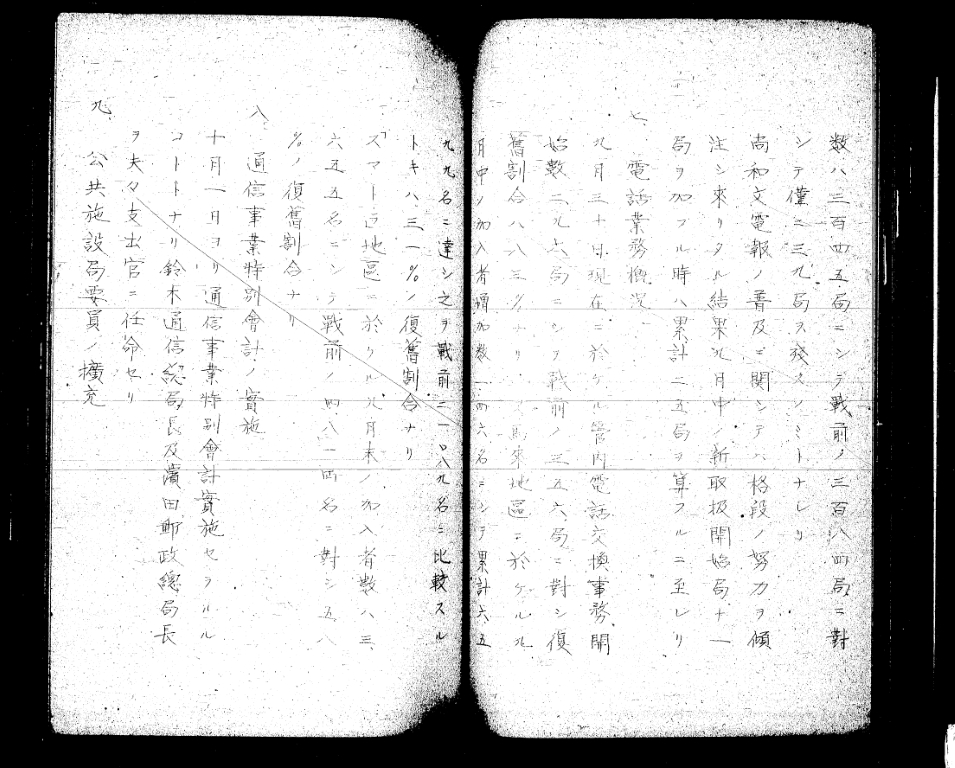 数八三百四五局ニシテ戦前ノ三百八四局ニ對
シテ僅ニ三九局ヲ殘スノミトナレリ
尚和文電報ノ普及ニ関シテハ格段ノ努力ヲ傾
注シ來リタル結果九月中ノ新取扱開始局十一
局ヲ加フル時ハ累計二五局ヲ算フルニ至レリ
七
電話業務概況
九月三十日現在ニ於ケル管内電話交換事務開
始数二九六局ニシテ戦前ノ三五六局ニ對シ復
舊割合八八三%ナリ 馬來地區ニ於ケル九
月中ノ加入者増加数一四六名ニシテ累計六五
九九名ニ達シ之ヲ戦前二一〇八九名ニ比較スル
トキハ三一%ノ復舊割合ナリ
スマトラ地區ニ於ケル九月末ノ加入者数ハ三
六五五名ニシテ戦前ノ四八一四名ニ對シ五八
%ノ復舊割合ナリ
八 通信事業特別會計ノ實施
十月一日ヨリ通信事業特別會計實施セラルル
コトトナリ鈴木通信総局長及濱田郵政總局長
ヲ夫々支出官ニ任命セリ
九 公共施設局要員ノ擴充